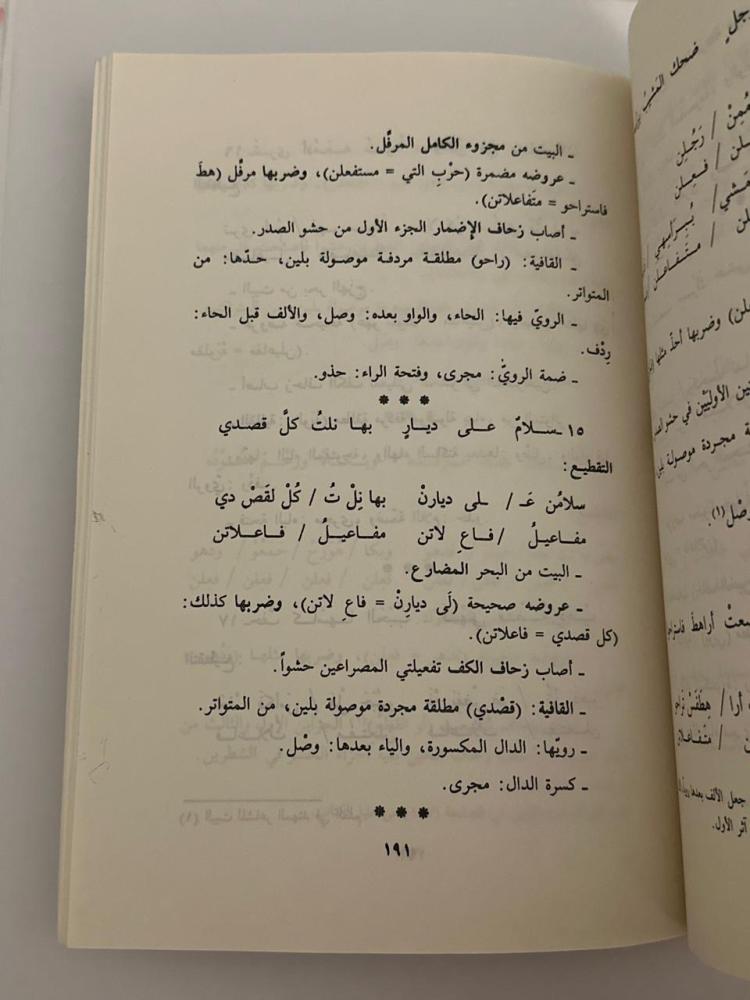 ـ البيت من مجزوء الكامل المرفّل.
ـ عروضه مضمرة (حرْبِ التي = مستفعلن)، وضربها مرفّل (هطَ
فاستراحو = متَفاعلاتن).
ـ أصاب زحاف الإضمار الجزء الأول من حشو الصدر.
ـ القافية: (راحو) مطلقة مردفة موصولة بلين، حدّها: من
المتواتر.
ـ الرويّ فيها: الحاء، والواو بعده: وصل، والألف قبل الحاء:
رِدْف.
ـ ضمة الرويّ: مجرى، وفتحة الراء: حذو.
* * *
١٥ـ سـلامٌ على ديـارٍ بهـا نلتُ كلَّ قصدي
التقطيع:
سلامُن عَـ / ـلى ديارنْ بها نِلْ تُ / كُلْ لَقَصْ دي
مفـاعيلُ / فـاعِ لاتن مفـاعيـلُ / فـاعـلاتن
ـ البيت من البحر المضارع.
ـ عروضه صحيحة (لَى ديارِنْ = فاعِ لاتن)، وضربها كذلك:
(كل قصدي = فاعلاتن).
ـ أصاب زحاف الكف تفعيلتي المصراعين حشواً.
ـ القافية: (قصْدي) مطلقة مجردة موصولة بلين، من المتواتر.
ـ رويّها: الدال المكسورة، والياء بعدها: وصْل.
ـ كسرة الدال: مجرى.
* * *
١٩١